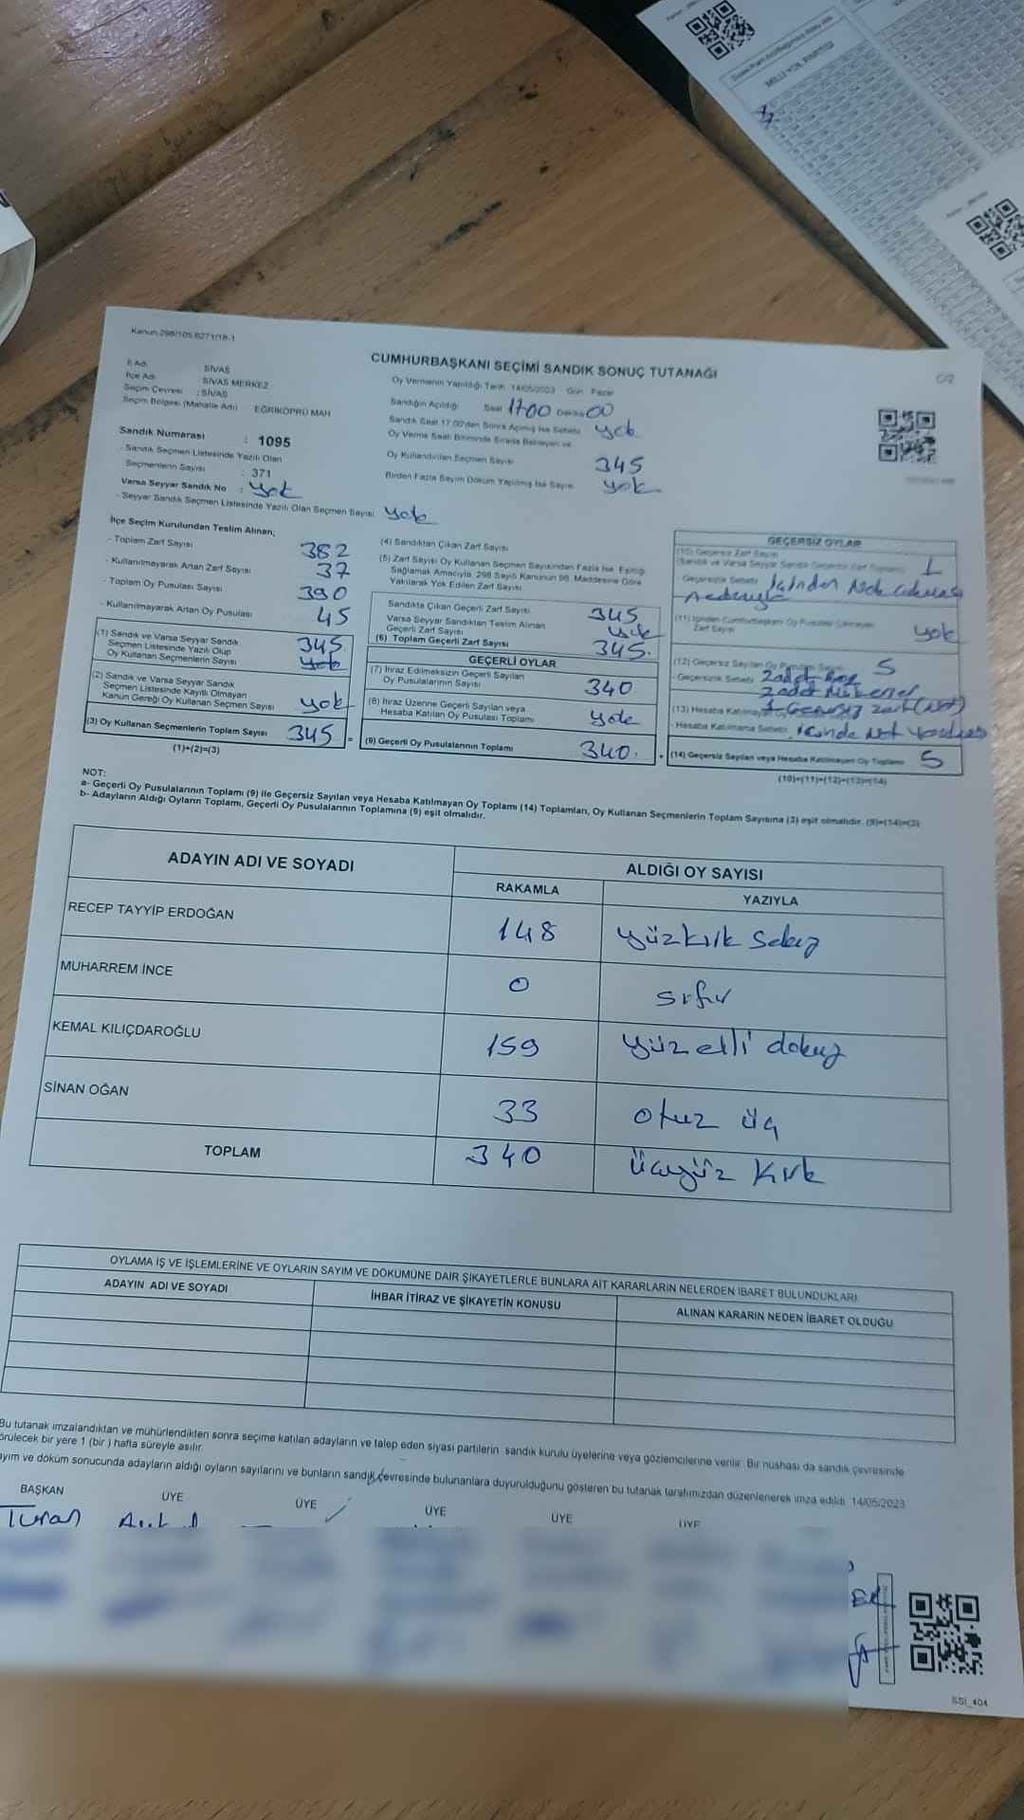 Kanun 298/105 6271/18-1
CUMHURBAŞKANI SEÇİMİ SANDIK SONUÇ TUTANAĞI
İl Adı : SİVAS
İlçe Adı : SİVAS MERKEZ
Seçim Çevresi : SİVAS
Seçim Bölgesi (Mahalle Adı) EĞRİKÖPRÜ MAH
Sandık Numarası : 1095
- Sandık Seçmen Listesinde Yazılı Olan
Seçmenlerin Sayısı : 371
Varsa Seyyar Sandık No : yok
- Seyyar Sandık Seçmen Listesinde Yazılı Olan Seçmen Sayısı yok
Oy Vermenin Yapıldığı Tarih 14/05/2023 Gün Pazar
Sandığın Açıldığı Saat 17:00 Dakika 00
Sandık Saat 17.00'den Sonra Açılmış İse Sebebi yok
Oy Verme Saati Bitiminde Sırada Bekleyen ve
Oy Kullandırılan Seçmen Sayısı 345
Birden Fazla Sayım Döküm Yapılmış İse Sayısı yok
İlçe Seçim Kurulundan Teslim Alınan;
- Toplam Zarf Sayısı 382
- Kullanılmayarak Artan Zarf Sayısı 37
- Toplam Oy Pusulası Sayısı 390
- Kullanılmayarak Artan Oy Pusulası 45
(1) Sandık ve Varsa Seyyar Sandık
Seçmen Listesinde Yazılı Olup
Oy Kullanan Seçmenlerin Sayısı 345 yok
(2) Sandık ve Varsa Seyyar Sandık
Seçmen Listesinde Kayıtlı Olmayan
Kanun Gereği Oy Kullanan Seçmen Sayısı yok
(3) Oy Kullanan Seçmenlerin Toplam Sayısı 345
(1)+(2)=(3)
(4) Sandıktan Çıkan Zarf Sayısı
(5) Zarf Sayısı Oy Kullanan Seçmen Sayısından Fazla İse, Eşitliği
Sağlamak Amacıyla, 298 Sayılı Kanunun 98. Maddesine Göre
Yakılarak Yok Edilen Zarf Sayısı
Sandıkta Çıkan Geçerli Zarf Sayısı 345
Varsa Seyyar Sandıktan Teslim Alınan
Geçerli Zarf Sayısı yok
(6) Toplam Geçerli Zarf Sayısı 345.
GEÇERLİ OYLAR
(7) İtiraz Edilmeksizin Geçerli Sayılan
Oy Pusulalarının Sayısı 340
(8) İtiraz Üzerine Geçerli Sayılan veya
Hesaba Katılan Oy Pusulası Toplamı yok
(9) Geçerli Oy Pusulalarının Toplamı 340.
GEÇERSİZ OYLAR
(10) Geçersiz Zarf Sayısı
(Sandık ve Varsa Seyyar Sandık Geçersiz Zarf Toplamı) 1
- Geçersizlik Sebebi içinden
yok
(12) Geçersiz Sayılan Oy Pusulası Sayısı 5
- Geçersizlik Sebebi 2 adet
2 adet
(13) Hesaba Katılmayan
- Hesaba Katılmama Sebebi
(14) Geçersiz Sayılan veya Hesaba Katılmayan Oy Toplamı 5
(10)+(11)+(12)+(13)=(14)
NOT:
a- Geçerli Oy Pusulalarının Toplamı (9) ile Geçersiz Sayılan veya Hesaba Katılmayan Oy Toplamı (14) Toplamları, Oy Kullanan Seçmenlerin Toplam Sayısına (3) eşit olmalıdır. (9)+(14)=(3)
b- Adayların Aldığı Oyların Toplamı, Geçerli Oy Pusulalarının Toplamına (9) eşit olmalıdır.
ADAYIN ADI VE SOYADI ALDIĞI OY SAYISI
RAKAMLA YAZIYLA
RECEP TAYYİP ERDOĞAN 148 yüzkırk sekiz
MUHARREM İNCE 0 sıfır
KEMAL KILIÇDAROĞLU 159 yüzelli dokuz
SİNAN OĞAN 33 otuz üç
TOPLAM 340 üçyüz kırk
OYLAMA İŞ VE İŞLEMLERİNE VE OYLARIN SAYIM VE DÖKÜMÜNE DAİR ŞİKAYETLERLE BUNLARA AİT KARARLARIN NELERDEN İBARET BULUNDUKLARI
ADAYIN ADI VE SOYADI İHBAR İTİRAZ VE ŞİKAYETİN KONUSU ALINAN KARARIN NEDEN İBARET OLDUĞU
Bu tutanak imzalandıktan ve mühürlendikten sonra seçime katılan adayların ve talep eden siyasi partilerin sandık kurulu üyelerine veya gözlemcilerine verilir. Bir nüshası da sandık çevresinde
örülecek bir yere 1 (bir) hafta süreyle asılır.
ayım ve döküm sonucunda adayların aldığı oyların sayılarını ve bunların sandık çevresinde bulunanlara duyurulduğunu gösteren bu tutanak tarafımızdan düzenlenerek imza edildi. 14/05/2023
BAŞKAN ÜYE ÜYE ÜYE ÜYE ÜYE
Turan
SSI_404